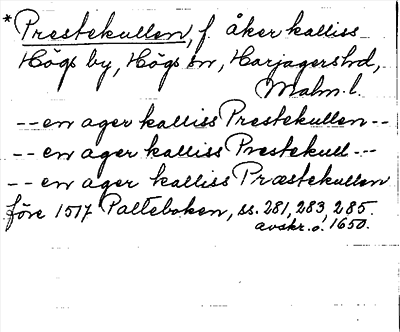 *Prestekullen, f. åker kalliss
Högs by, Högs sn, Harjagers hd,
Malm. l.
-- en ager kalliss Prestekullen --
-- en ager kalliss Prestekull ---
-- en ager kalliss Præstekullen
före 1517 Palteboken, ss. 281, 283, 285.
avskr. o. 1650.